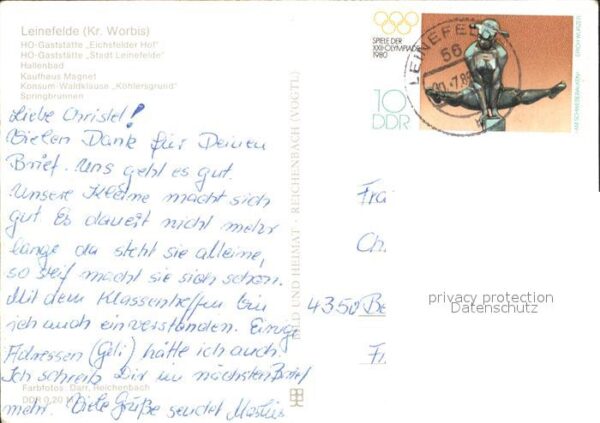 Leinefelde (Kr. Worbis)
HO-Gaststätte „Eichsfelder Hof"
HO-Gaststätte „Stadt Leinefelde"
Hallenbad
Kaufhaus Magnet
Konsum-Waldklause „Köhlersgrund"
Springbrunnen
Liebe Christel!
Vielen Dank für Deinen
Brief. Uns geht es gut.
Unsere Kleine macht sich
gut. Es dauert nicht mehr
lange da steht sie alleine,
so steif macht sie sich schon.
Mit dem Klassentreffen bin
ich auch einverstanden. Einige
Adressen (Gili) hätte ich auch.
Ich schreib Dir im nächsten Brief
mehr. Viele Grüße sendet
Farbfotos: Darr, Reichenbach
DDR 0,20 M
BILD UND HEIMAT · REICHENBACH (VOGTL)
SPIELE DER
XXII. OLYMPIADE
1980
10
DDR
LEINEFELDE
56
ERICH WUNSCH
AM SCHWEBEBALKEN
Fra
Ch
4350 Be
privacy protection
Datenschutz
F